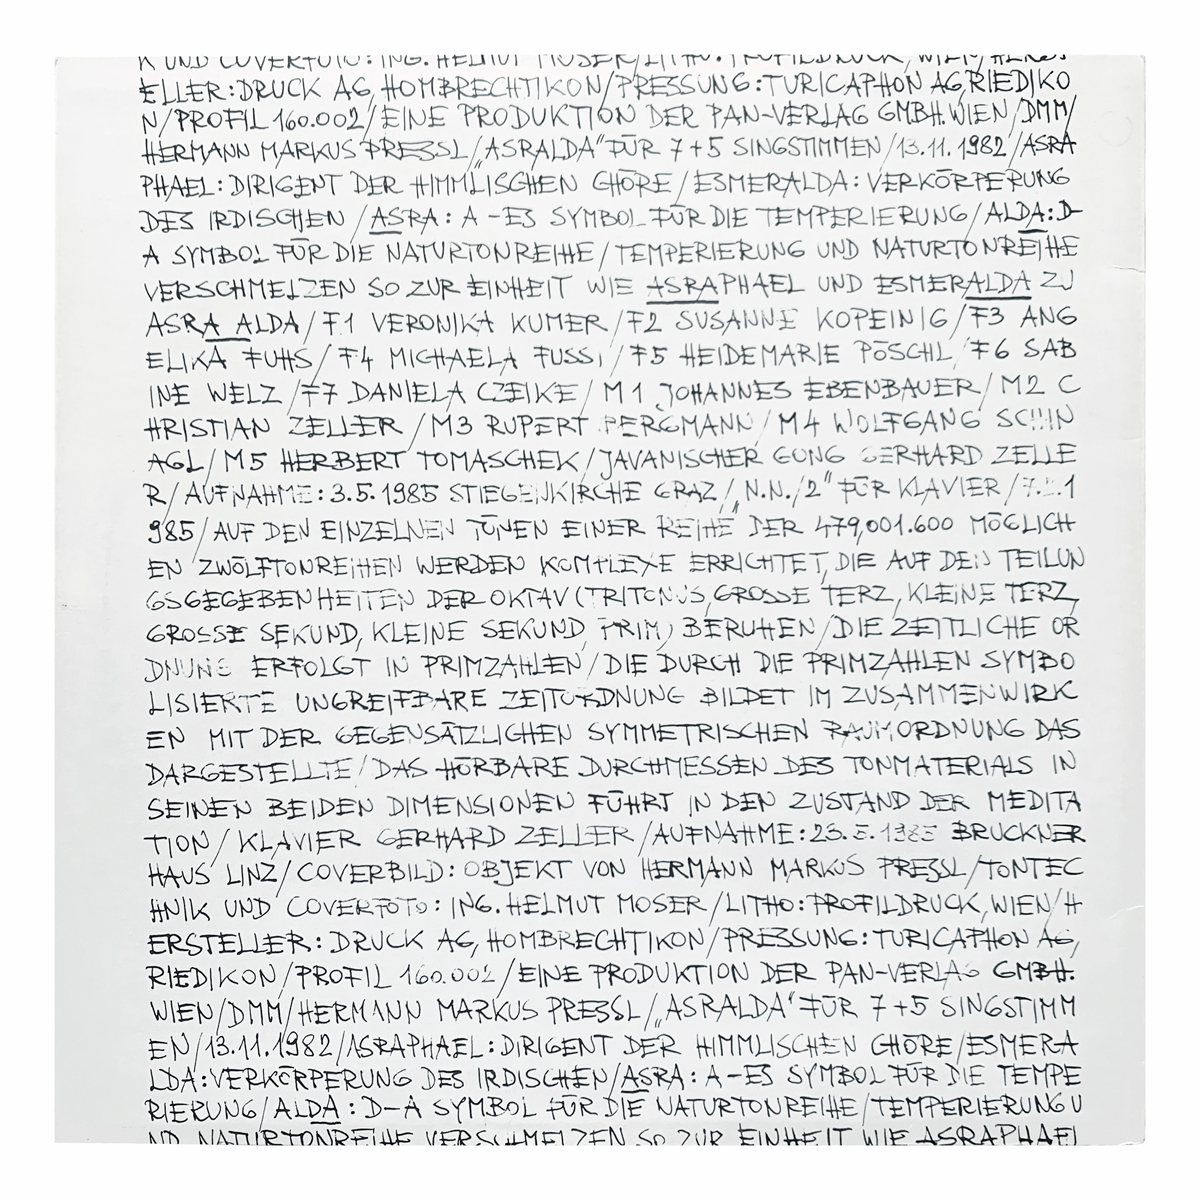 K UND COVERFOTO: ING. HELMUT MOSER/LITHO: PROFILDRUCK, WIEN/HERST
ELLER: DRUCK AG, HOMBRECHTIKON/PRESSUNG: TURICAPHON AG, RIEDIKO
N/PROFIL 160.002/EINE PRODUKTION DER PAN-VERLAG GMBH. WIEN/DMM/
HERMANN MARKUS PRESSL/„ASRALDA“ FÜR 7+5 SINGSTIMMEN/13.11.1982/ASRA
PHAEL: DIRIGENT DER HIMMLISCHEN CHÖRE/ESMERALDA: VERKÖRPERUNG
DES IRDISCHEN/ASRA: A-ES SYMBOL FÜR DIE TEMPERIERUNG/ALDA: D-
A SYMBOL FÜR DIE NATURTONREIHE/TEMPERIERUNG UND NATURTONREIHE
VERSCHMELZEN SO ZUR EINHEIT WIE ASRAPHAEL UND ESMERALDA ZU
ASRA ALDA/F1 VERONIKA KUMER/F2 SUSANNE KOPEINIG/F3 ANG
ELIKA FUHS/F4 MICHAELA FUSSI/F5 HEIDEMARIE PÖSCHL/F6 SAB
INE WELZ/F7 DANIELA CZEIKE/M1 JOHANNES EBENBAUER/M2 C
HRISTIAN ZELLER/M3 RUPERT BERGMANN/M4 WOLFGANG SCHIN
AGL/M5 HERBERT TOMASCHEK/JAVANISCHER GONG GERHARD ZELLE
R/AUFNAHME: 3.5.1985 STIEGENKIRCHE GRAZ/„N.N./2“ FÜR KLAVIER/7.2.1
985/AUF DEN EINZELNEN TÖNEN EINER REIHE DER 479,001.600 MÖGLICH
EN ZWÖLFTONREIHEN WERDEN KOMPLEXE ERRICHTET, DIE AUF DEN TEILUN
GSGEGEBENHEITEN DER OKTAV (TRITONUS, GROSSE TERZ, KLEINE TERZ,
GROSSE SEKUND, KLEINE SEKUND, PRIM) BERUHEN/DIE ZEITLICHE OR
DNUNG ERFOLGT IN PRIMZAHLEN/DIE DURCH DIE PRIMZAHLEN SYMBO
LISIERTE UNGREIFBARE ZEITORDNUNG BILDET IM ZUSAMMENWIRK
EN MIT DER GEGENSÄTZLICHEN SYMMETRISCHEN RAUMORDNUNG DAS
DARGESTELLTE/DAS HÖRBARE DURCHMESSEN DES TONMATERIALS IN
SEINEN BEIDEN DIMENSIONEN FÜHRT IN DEN ZUSTAND DER MEDITA
TION/KLAVIER GERHARD ZELLER/AUFNAHME: 23.5.1985 BRUCKNER
HAUS LINZ/COVERBILD: OBJEKT VON HERMANN MARKUS PRESSL/TONTEC
HNIK UND COVERFOTO: ING. HELMUT MOSER/LITHO: PROFILDRUCK, WIEN/H
ERSTELLER: DRUCK AG, HOMBRECHTIKON/PRESSUNG: TURICAPHON AG,
RIEDIKON/PROFIL 160.002/EINE PRODUKTION DER PAN-VERLAG GMBH.
WIEN/DMM/HERMANN MARKUS PRESSL/„ASRALDA“ FÜR 7+5 SINGSTIMM
EN/13.11.1982/ASRAPHAEL: DIRIGENT DER HIMMLISCHEN CHÖRE/ESMERA
LDA: VERKÖRPERUNG DES IRDISCHEN/ASRA: A-ES SYMBOL FÜR DIE TEMPE
RIERUNG/ALDA: D-A SYMBOL FÜR DIE NATURTONREIHE/TEMPERIERUNG U
ND NATURTONREIHE VERSCHMELZEN SO ZUR EINHEIT WIE ASRAPHAEL